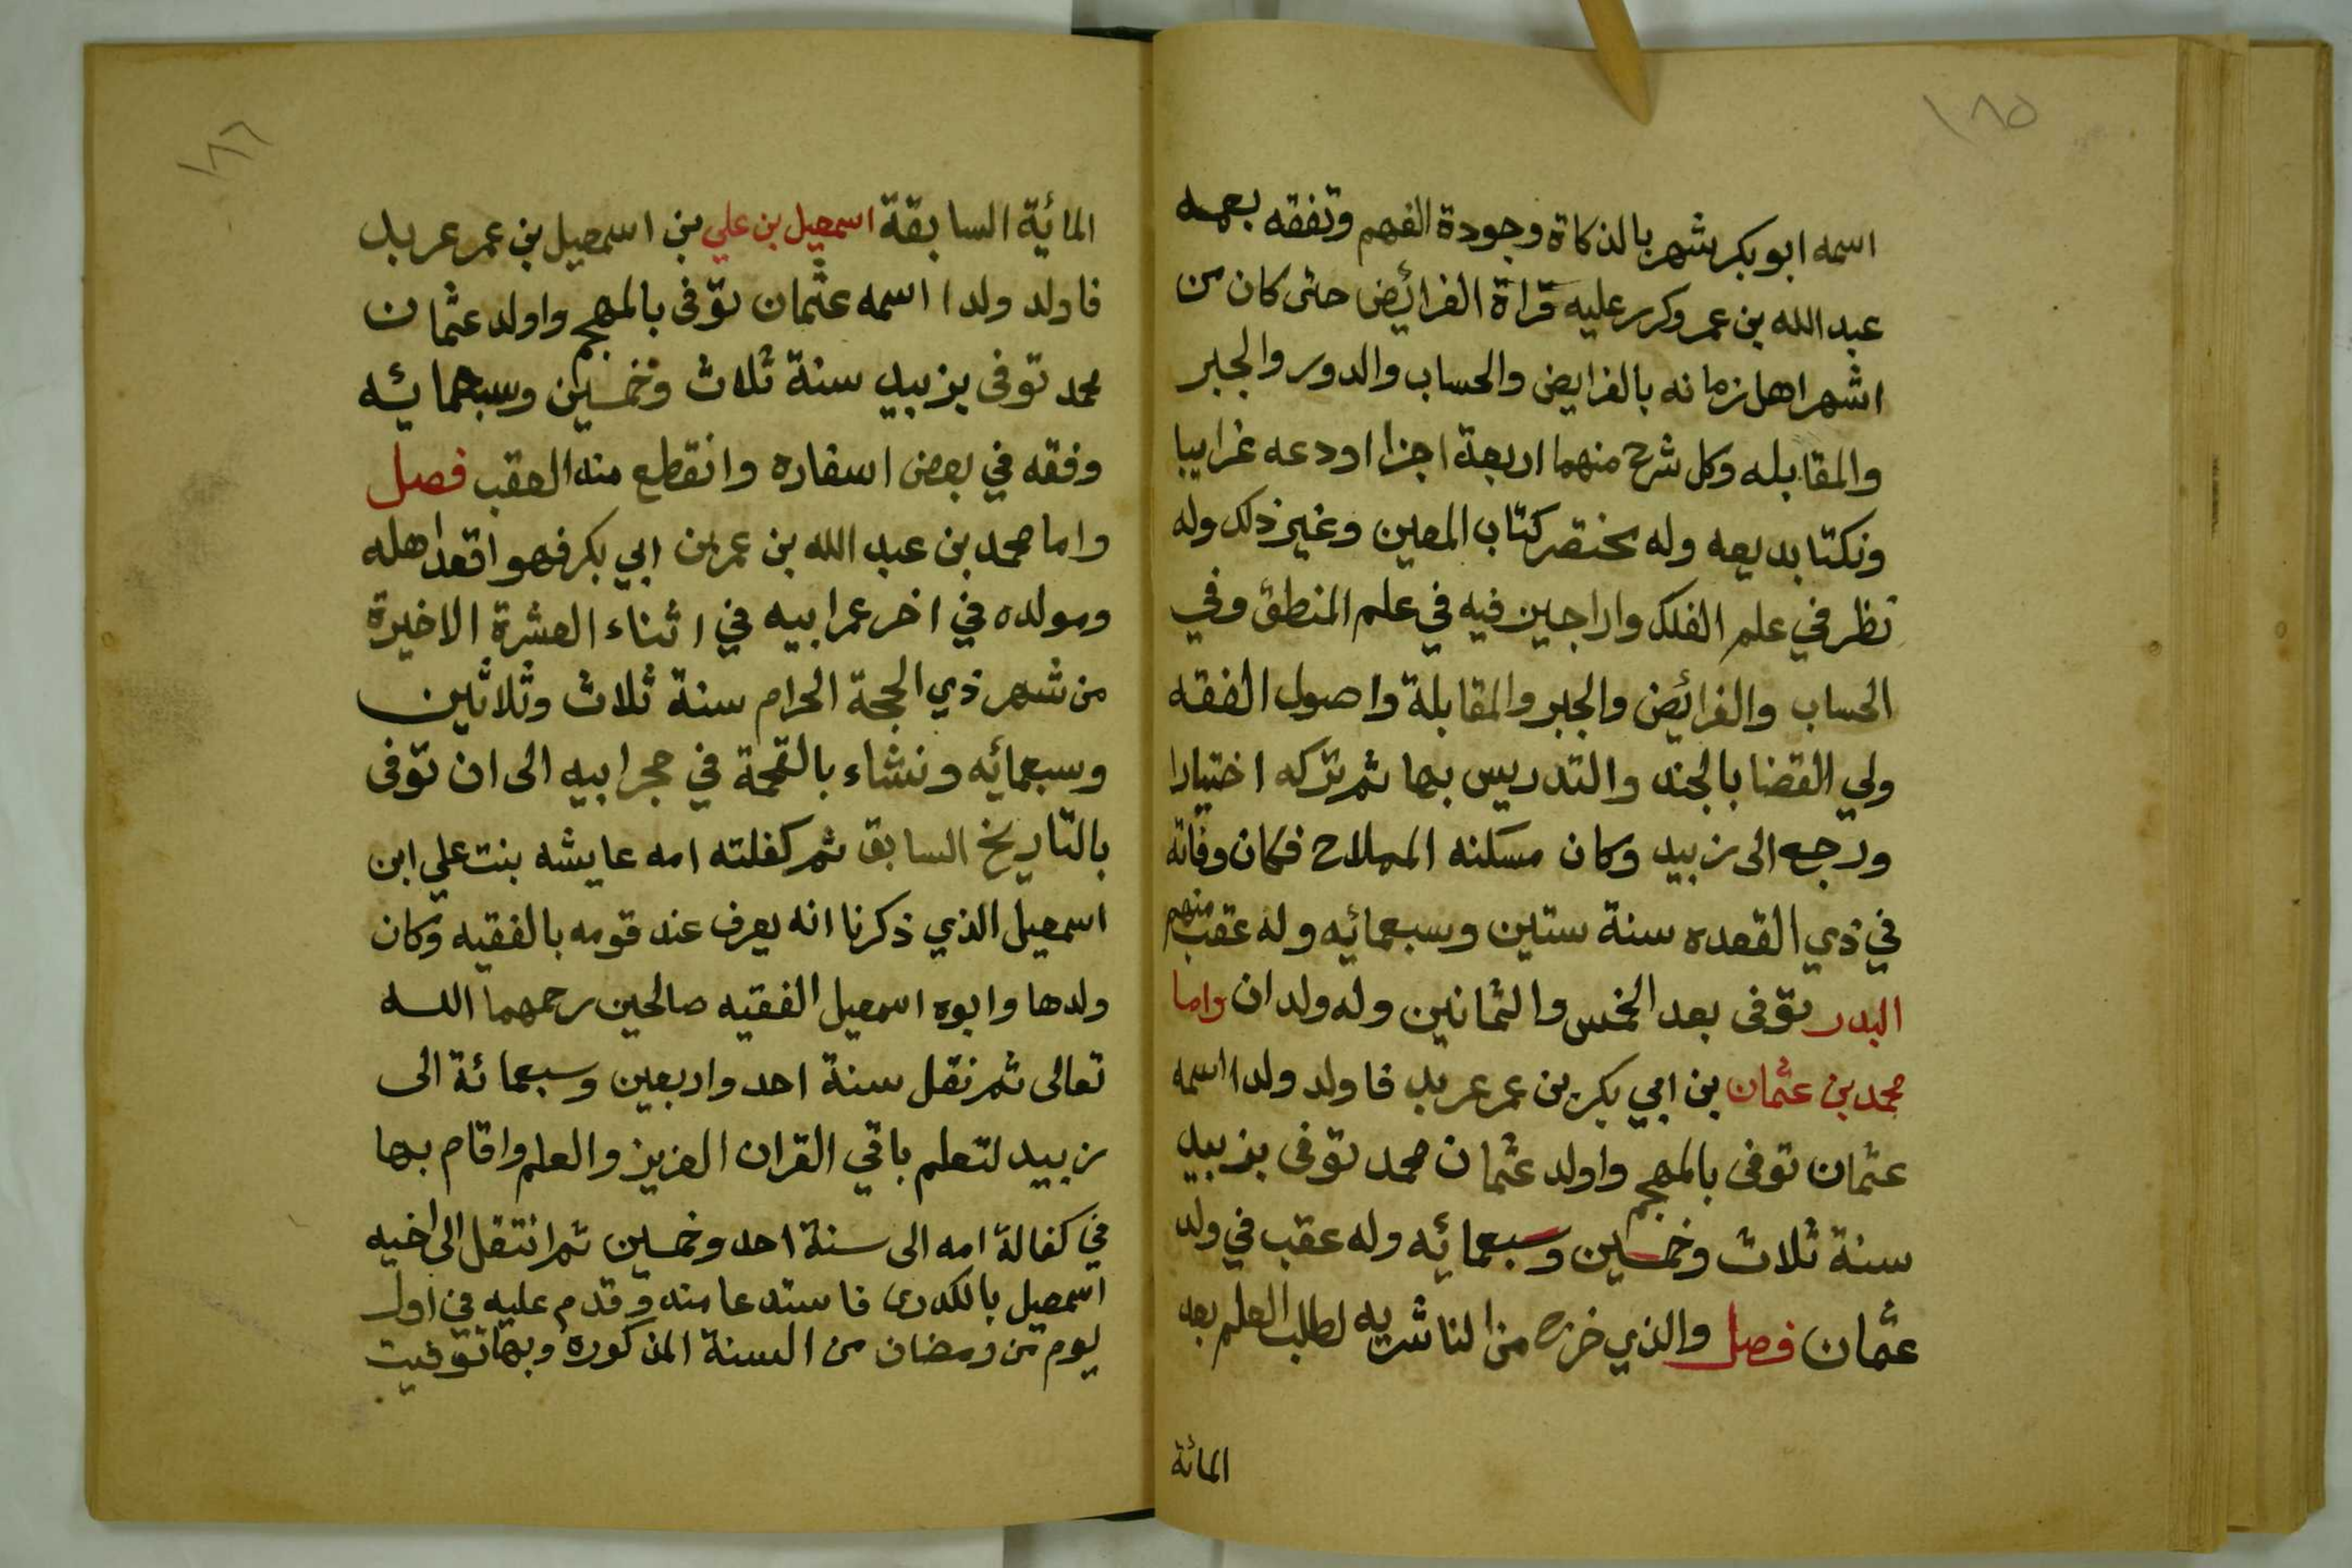 ١٨٥
اسمه ابو بكر شهر بالذكاة وجودة الفهم وتفقه بعمه
عبد الله بن عمر وكرر عليه قراة الفرائض حتى كان من
اشهر اهل زمانه بالفرايض والحساب والدور والجبر
والمقابله وكل شرح منهما اربعة اجزا اودعه غراييا
ونكتا بديعه وله مختصر كتاب المعين وغير ذلك وله
نظر في علم الفلك واراجين فيه في علم المنطق وفي
الحساب والفرائض والجبر والمقابلة واصول الفقه
ولي القضا بالجند والتدريس بها ثم تركه اختيارا
ورجع الى زبيد وكان مسكنه المملاح فكان وفاته
في ذي القعده سنة ستين وسبعمائه وله عقب منهم
البدر توفى بعد الخمس والثمانين وله ولدان واما
محمد بن عثمان بن ابي بكر بن عمر عربد فاولد ولدا اسمه
عثمان توفى بالمهجم واولد عثمان محمد توفى بزبيد
سنة ثلاث وخمسين وسبعمائه وله عقب في ولد
عثمان فصل والذي خرج من الناشريه لطلب العلم بعد
المائة
١٨٦
المائية السابقة اسمعيل بن علي بن اسمعيل بن عمر عربد
فاولد ولدا اسمه عثمان توفى بالمهجم واولد عثمان
محمد توفى بزبيد سنة ثلاث وخمسين وسبعمائه
وفقه في بعض اسفاره وانقطع منه العقب فصل
واما محمد بن عبد الله بن عمر بن ابي بكر فهو اقعد اهله
ومولده في اخر عمر ابيه في اثناء العشرة الاخيرة
من شهر ذي الحجة الحرام سنة ثلاث وثلاثين
وسبعمائه ونشاء بالقحمة في حجر ابيه الى ان توفى
بالتاريخ السابق ثم كفلته امه عايشه بنت علي ابن
اسمعيل الذي ذكرنا انه يعرف عند قومه بالفقيه وكان
ولدها وابوه اسمعيل الفقيه صالحين رحمهما الله
تعالى ثم نقل سنة احد واربعين وسبعمائة الى
زبيد لتعلم باقي القران العزيز والعلم واقام بها
في كفالة امه الى سنة احد وخمسين ثم انتقل الى اخيه
اسمعيل بالكدرى فاستدعا منه وقدم عليه في اول
يوم من رمضان من السنة المذكوره وبها توفيت